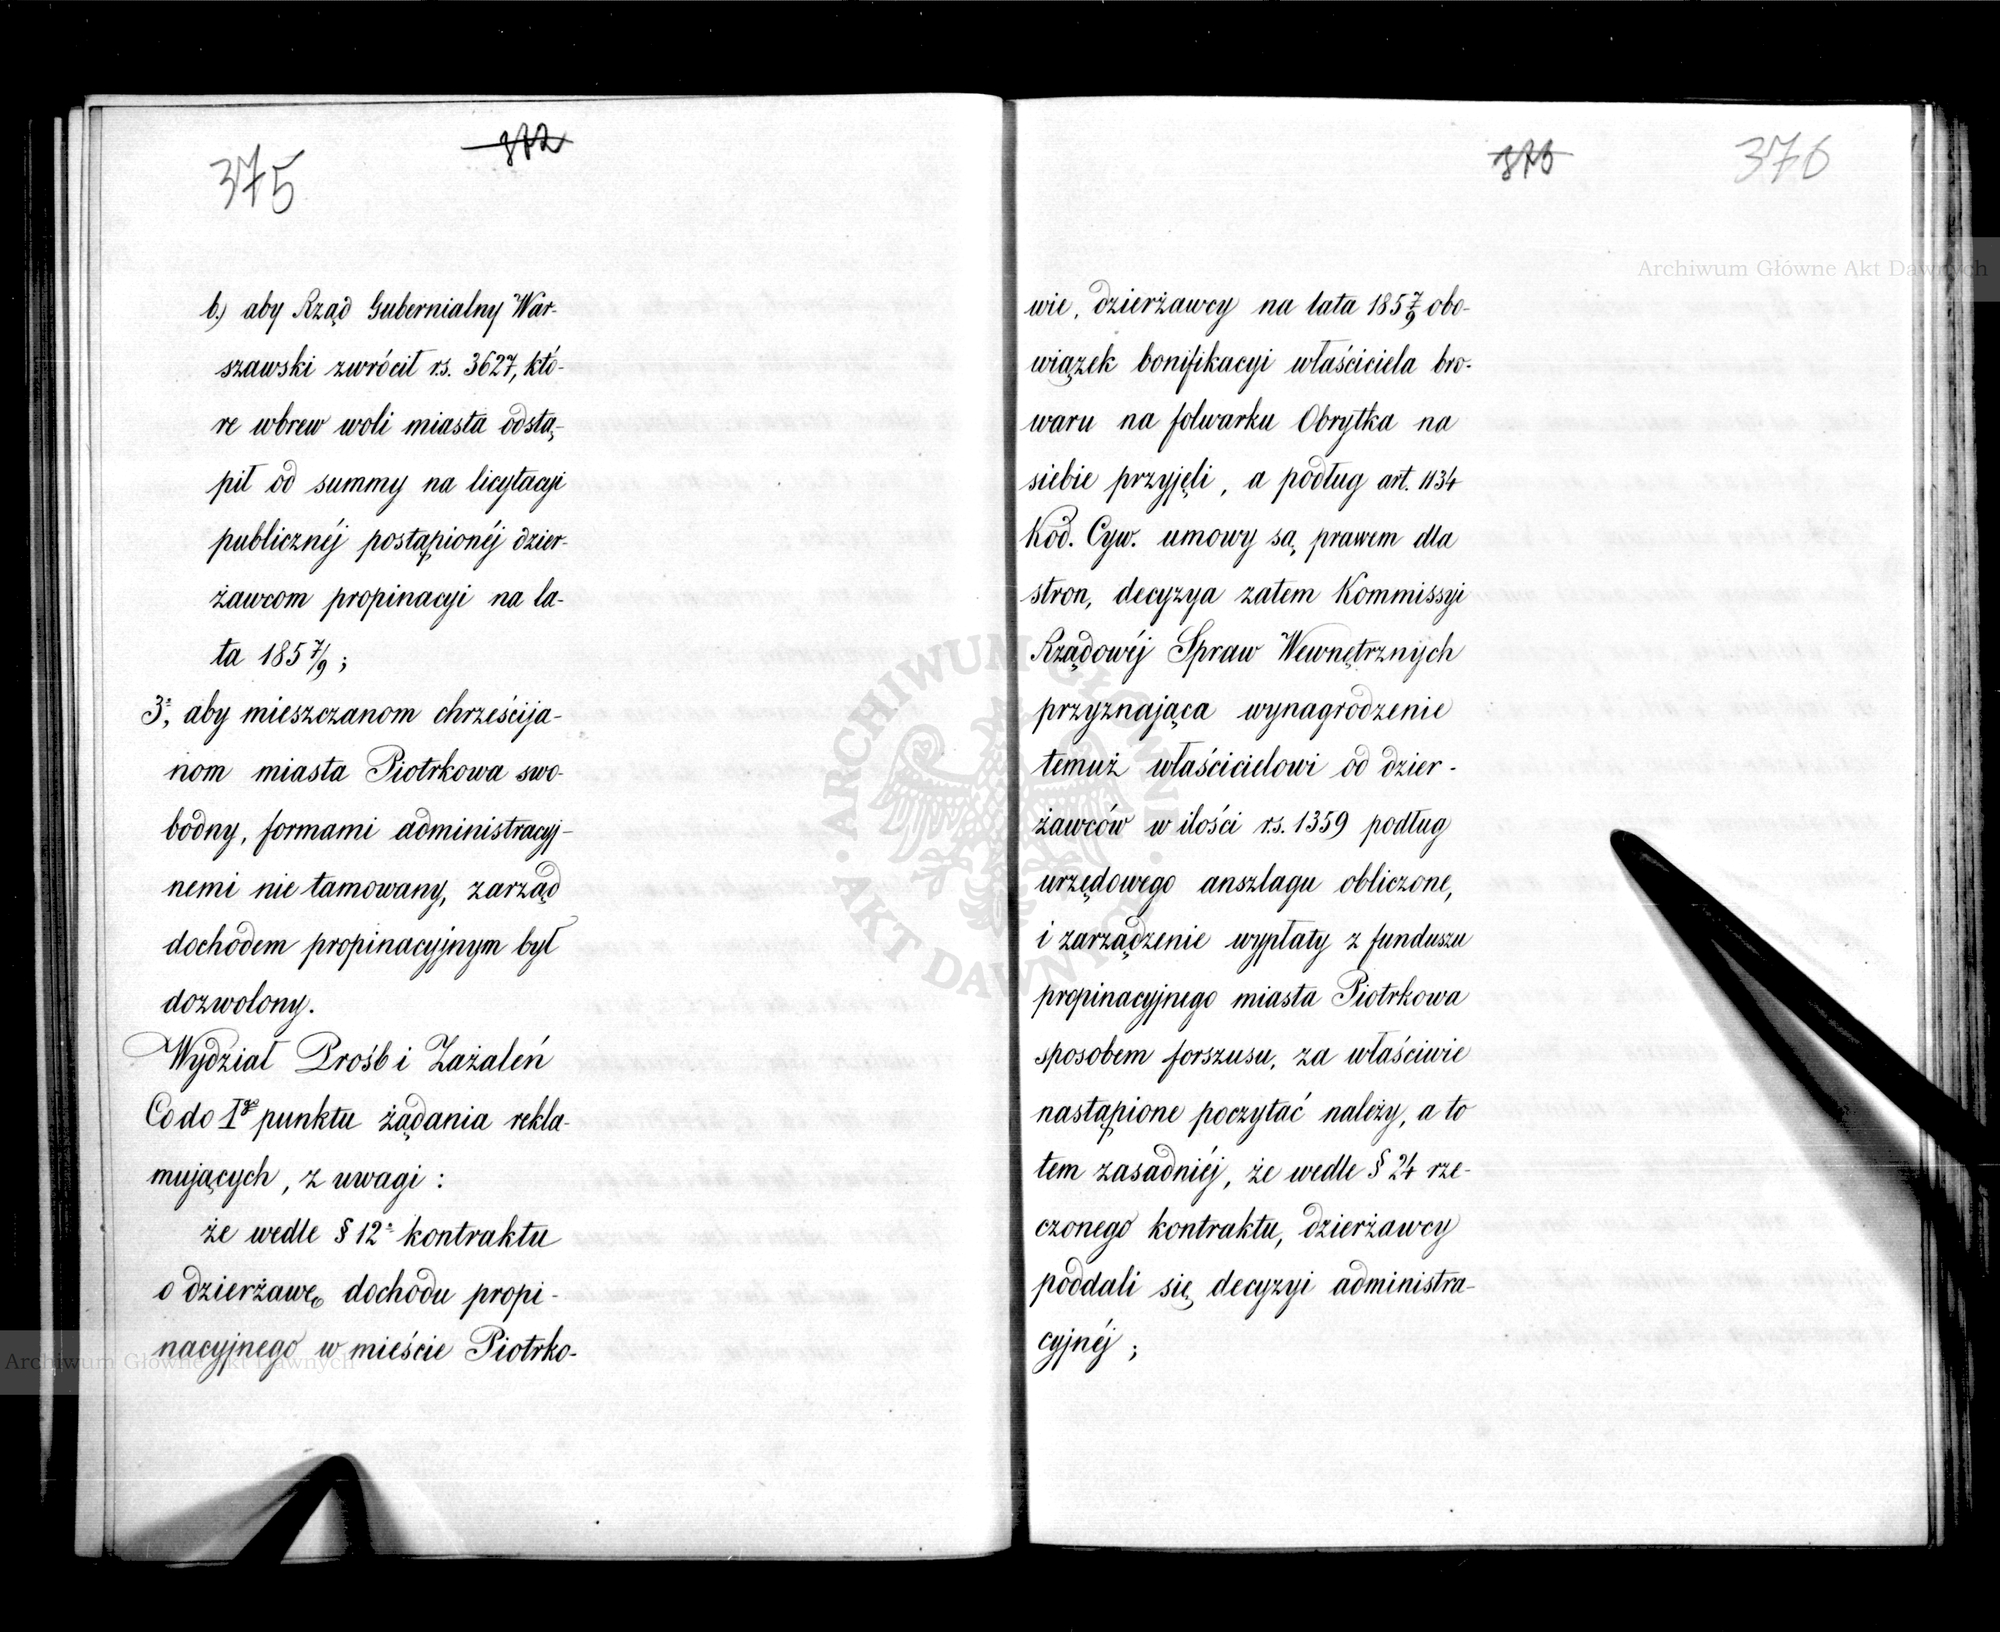 375
372
b.) aby Rząd Gubernialny War-
szawski zwrócił rs. 3627, któ-
re wbrew woli miasta odstą-
pił od summy na licytacyi
publicznéj postąpionéj dzier-
żawcom propinacyi na la-
ta 185 7/9;
3º, aby mieszczanom chrześcija-
nom miasta Piotrkowa swo-
bodny, formami administracyj-
nemi nie tamowany, zarząd
dochodem propinacyjnym był
dozwolony.
Wydział Prośb i Zażaleń
Co do Igo punktu żądania rekla-
mujących, z uwagi:
że wedle § 12º kontraktu
o dzierżawę dochodu propi-
nacyjnego w mieście Piotrko-
373
376
wie, dzierżawcy na lata 185 7/9 obo-
wiązek bonifikacyi właściciela bro-
waru na folwarku Obrytka na
siebie przyjęli, a podług art. 1134
Kod. Cyw. umowy są prawem dla
stron, decyzya zatem Kommissyi
Rządowéj Spraw Wewnętrznych
przyznająca wynagrodzenie
temuż właścicielowi od dzier-
żawców w ilości rs. 1359 podług
urzędowego anszlagu obliczone,
i zarządzenie wypłaty z funduszu
propinacyjnego miasta Piotrkowa
sposobem forszusu, za właściwie
nastąpione poczytać należy, a to
tem zasadniéj, że wedle § 24 rze-
czonego kontraktu, dzierżawcy
poddali się decyzyi administra-
cyjnéj;
Archiwum Główne Akt Dawnych
Archiwum Główne Akt Dawnych